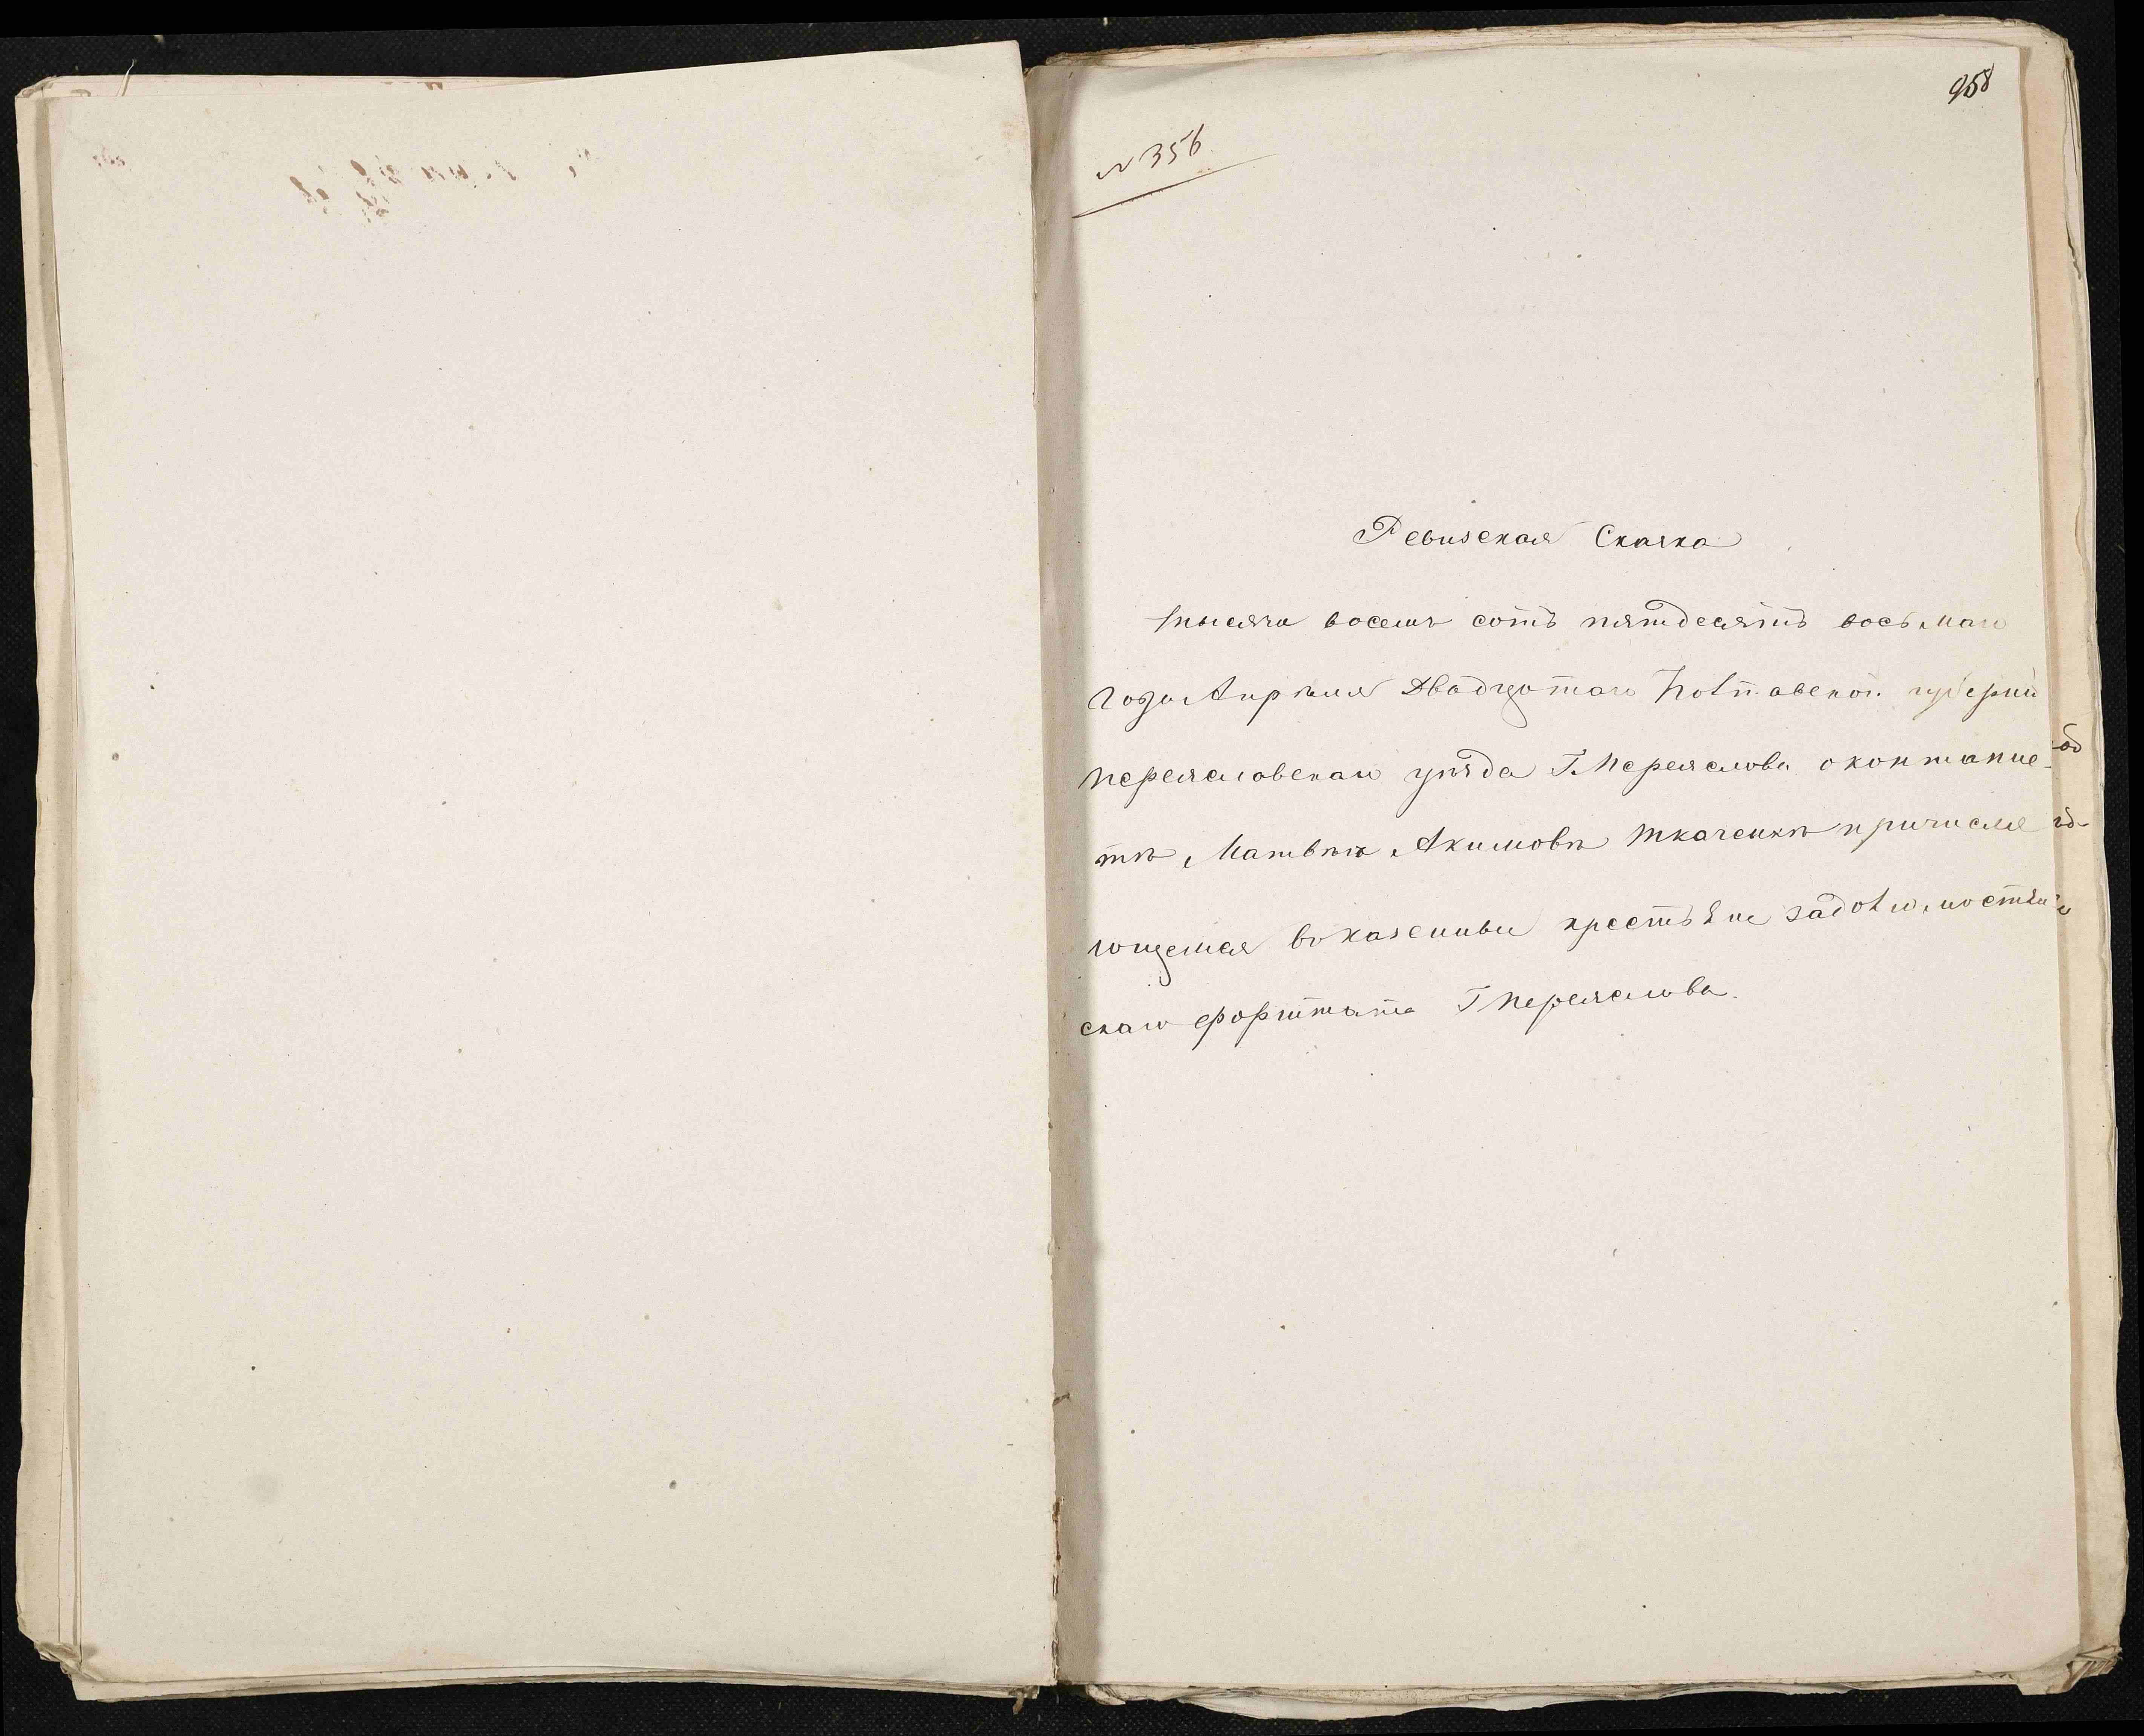 958
№ 356
Ревизская Сказка
тысяча восемъ сотъ пятдесятъ восьмаго
года Апрѣля двадцятаго Полтавской губерніи
переясловскаго уѣзда Г. Переяслова о контанис-
тѣ Матвѣѣ Акимовѣ Ткаченкѣ причисля
ющемся въ казенныи крестьяне
скаго форштата Г Переяслова.